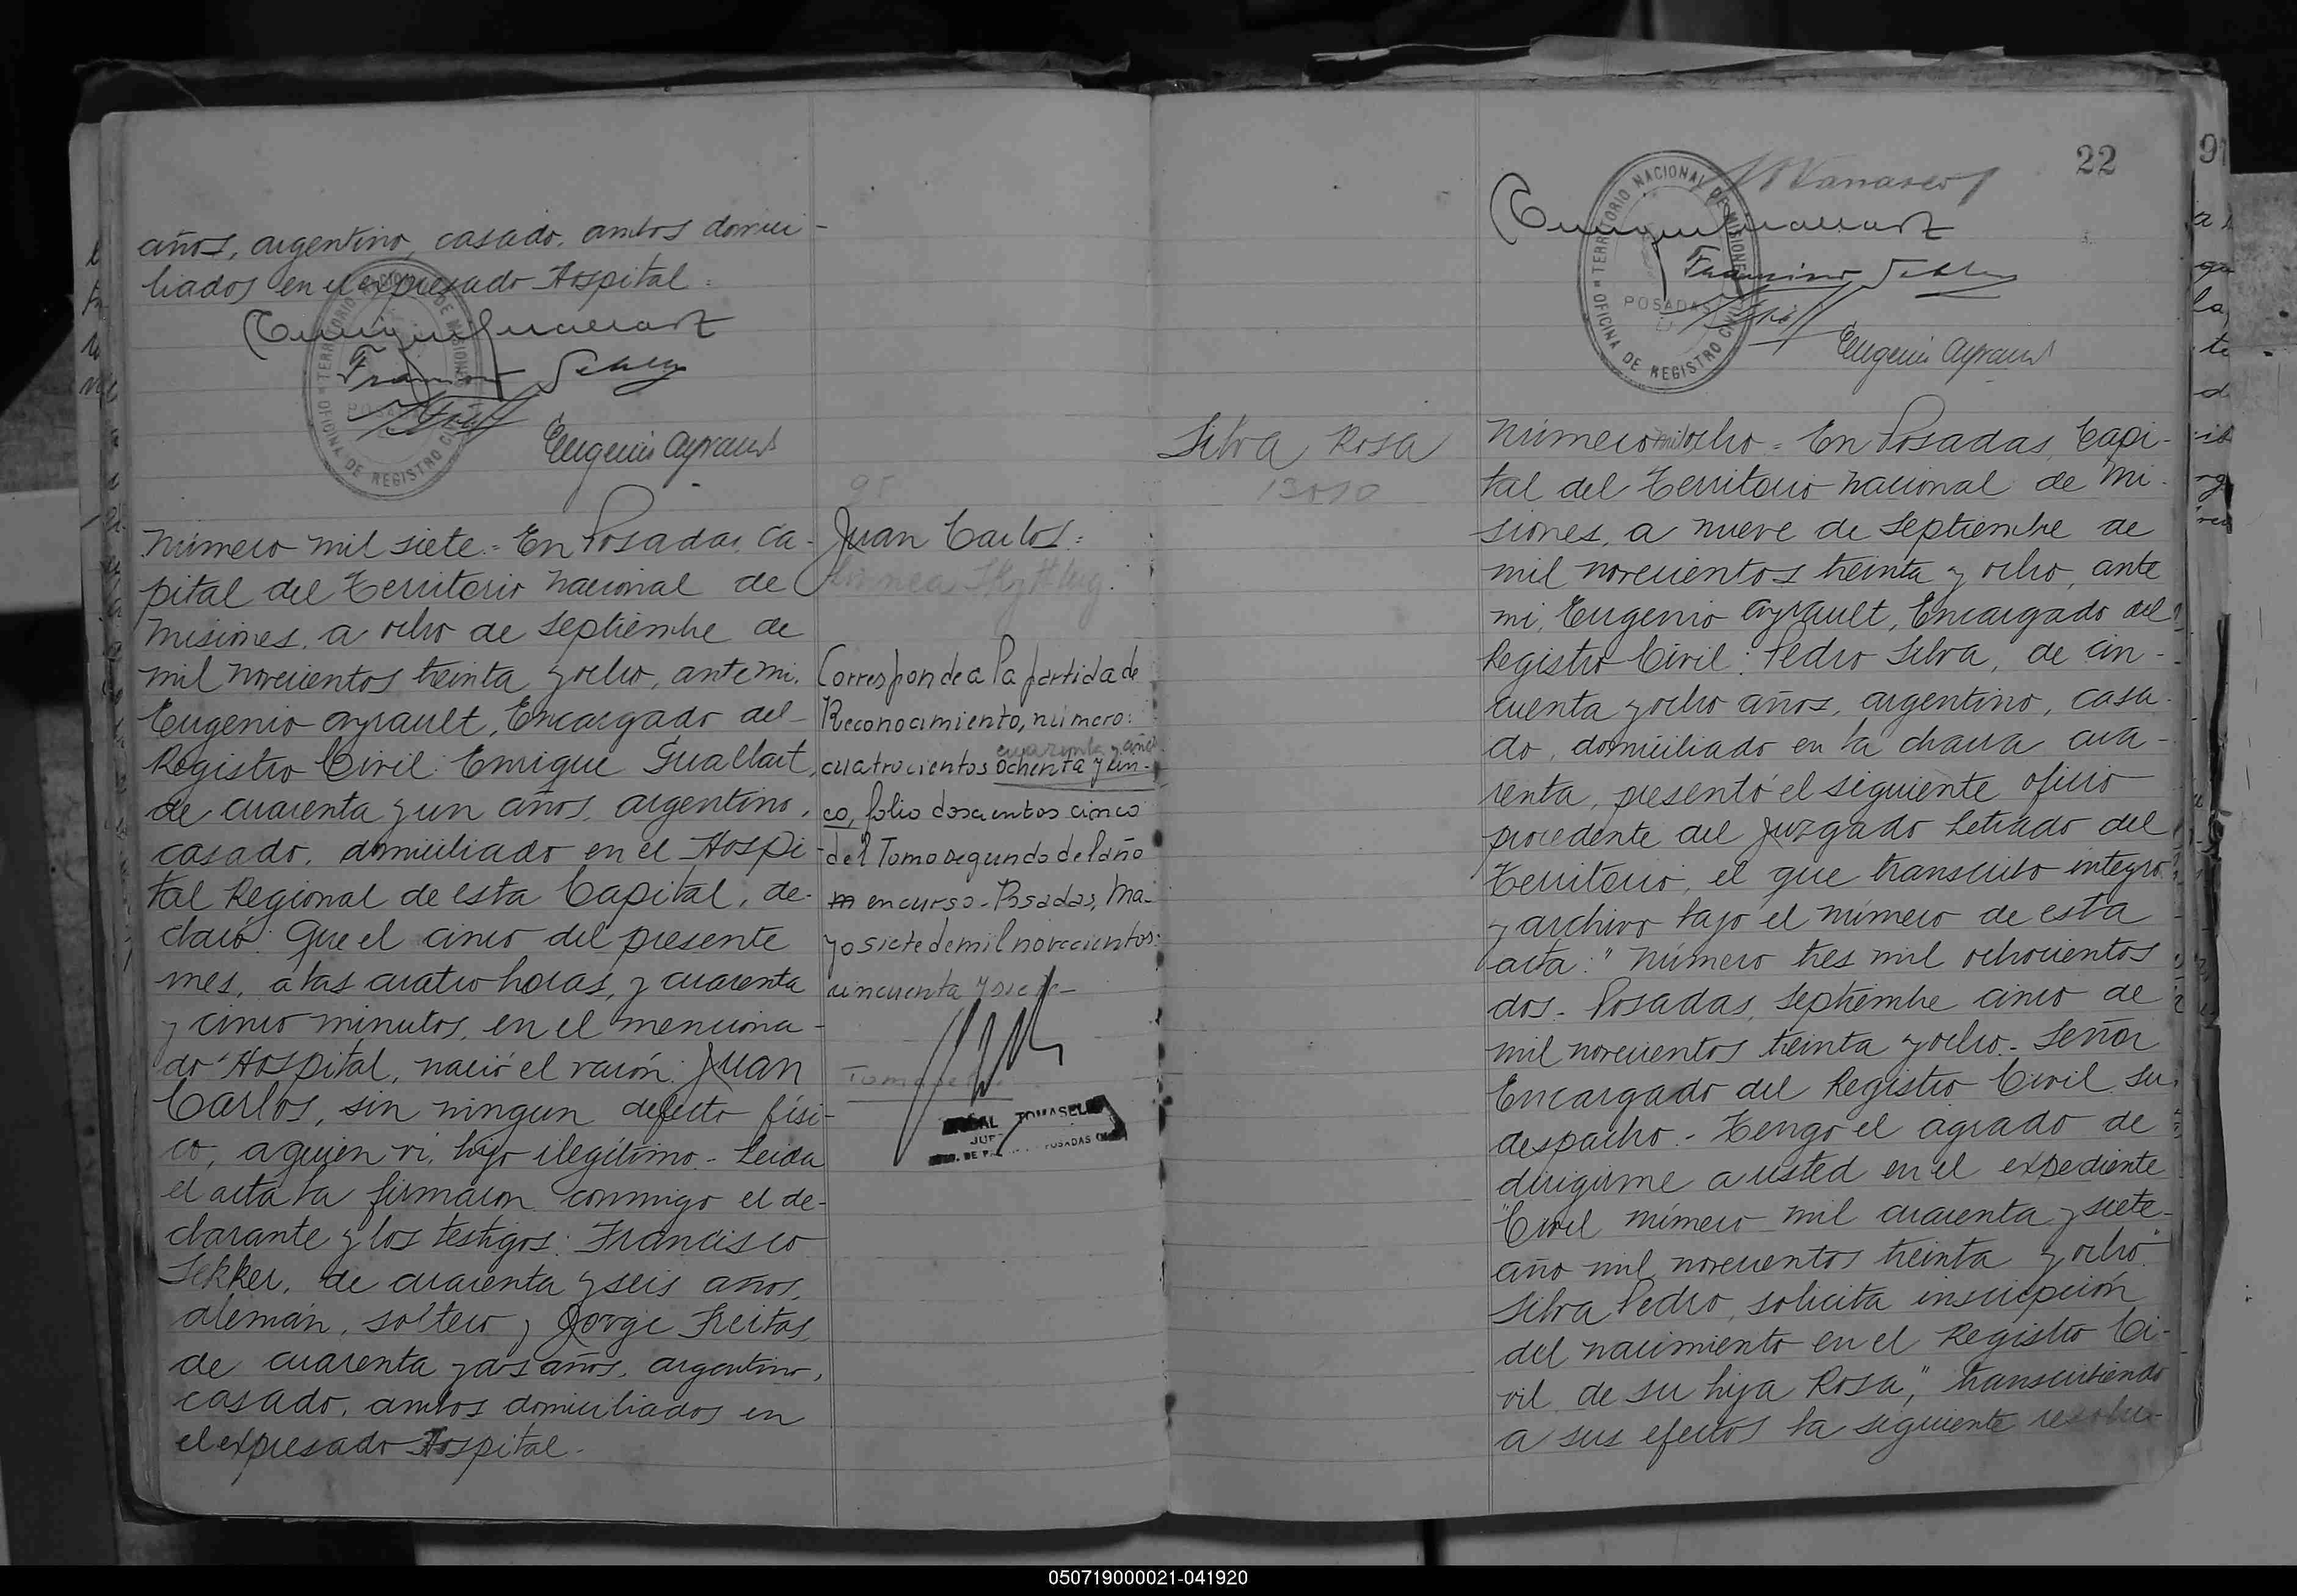 años, argentino, casado, ambos domici-
liados en el expresado Hospital.
OFICINA DE REGISTRO CIVIL
TERRITORIO NACIONAL DE MISIONES
POSADAS
Enrique Guallart
Eugenio Ayrault
Número mil siete = En Posadas, Ca-
pital del Territorio Nacional de
Misiones, a ocho de Septiembre de
mil novecientos treinta y ocho, ante mi,
Eugenio Ayrault, Encargado del
Registro Civil: Enrique Guallart,
de cuarenta y un años, argentino,
casado, domiciliado en el Hospi-
tal Regional de esta Capital, de-
claró: Que el cinco del presente
mes, a las cuatro horas, y cuarenta
y cinco minutos, en el menciona-
do Hospital, nació el varón: Juan
Carlos, sin ningun defecto físi-
co, a quien vi, hijo ilegítimo.- Leida
el acta la firmaron conmigo el de-
clarante y los testigos: Francisco
Sekker, de cuarenta y seis años,
alemán, soltero y Jorge Freitas,
de cuarenta y dos años, argentino,
casado, ambos domiciliados en
el expresado Hospital.-
95
Juan Carlos:
Corresponde a la partida de
Reconocimiento, número:
cuarenta y cinco
cuatrocientos ochenta y cin-
co, folio doscientos cinco
del Tomo segundo del año
en curso.- Posadas, Ma-
yo siete de mil novecientos
cincuenta y siete-
TOMASELLI
POSADAS
Silva Rosa
22
OFICINA DE REGISTRO CIVIL
TERRITORIO NACIONAL DE MISIONES
POSADAS
Enrique Guallart
Eugenio Ayrault
Número mil ocho = En Posadas, Capi-
tal del Territorio Nacional de Mi-
siones, a nueve de Septiembre de
mil novecientos treinta y ocho, ante
mi, Eugenio Ayrault, Encargado del
Registro Civil: Pedro Silva, de cin-
cuenta y ocho años, argentino, casa-
do, domiciliado en la chacra cua-
renta, presentó el siguiente oficio
procedente del Juzgado Letrado del
Territorio, el que transcribo integro
y archivo bajo el número de esta
acta: "Número tres mil ochocientos
dos.- Posadas, Septiembre cinco de
mil novecientos treinta y ocho.- Señor
Encargado del Registro Civil. Su
despacho.- Tengo el agrado de
dirigirme a usted en el expediente
"Civil número mil cuarenta y siete
año mil novecientos treinta y ocho"
Silva Pedro, solicita inscripción
del nacimiento en el Registro Ci-
vil de su hija Rosa," transcribiendo
a sus efectos la siguiente resolu-
050719000021-041920